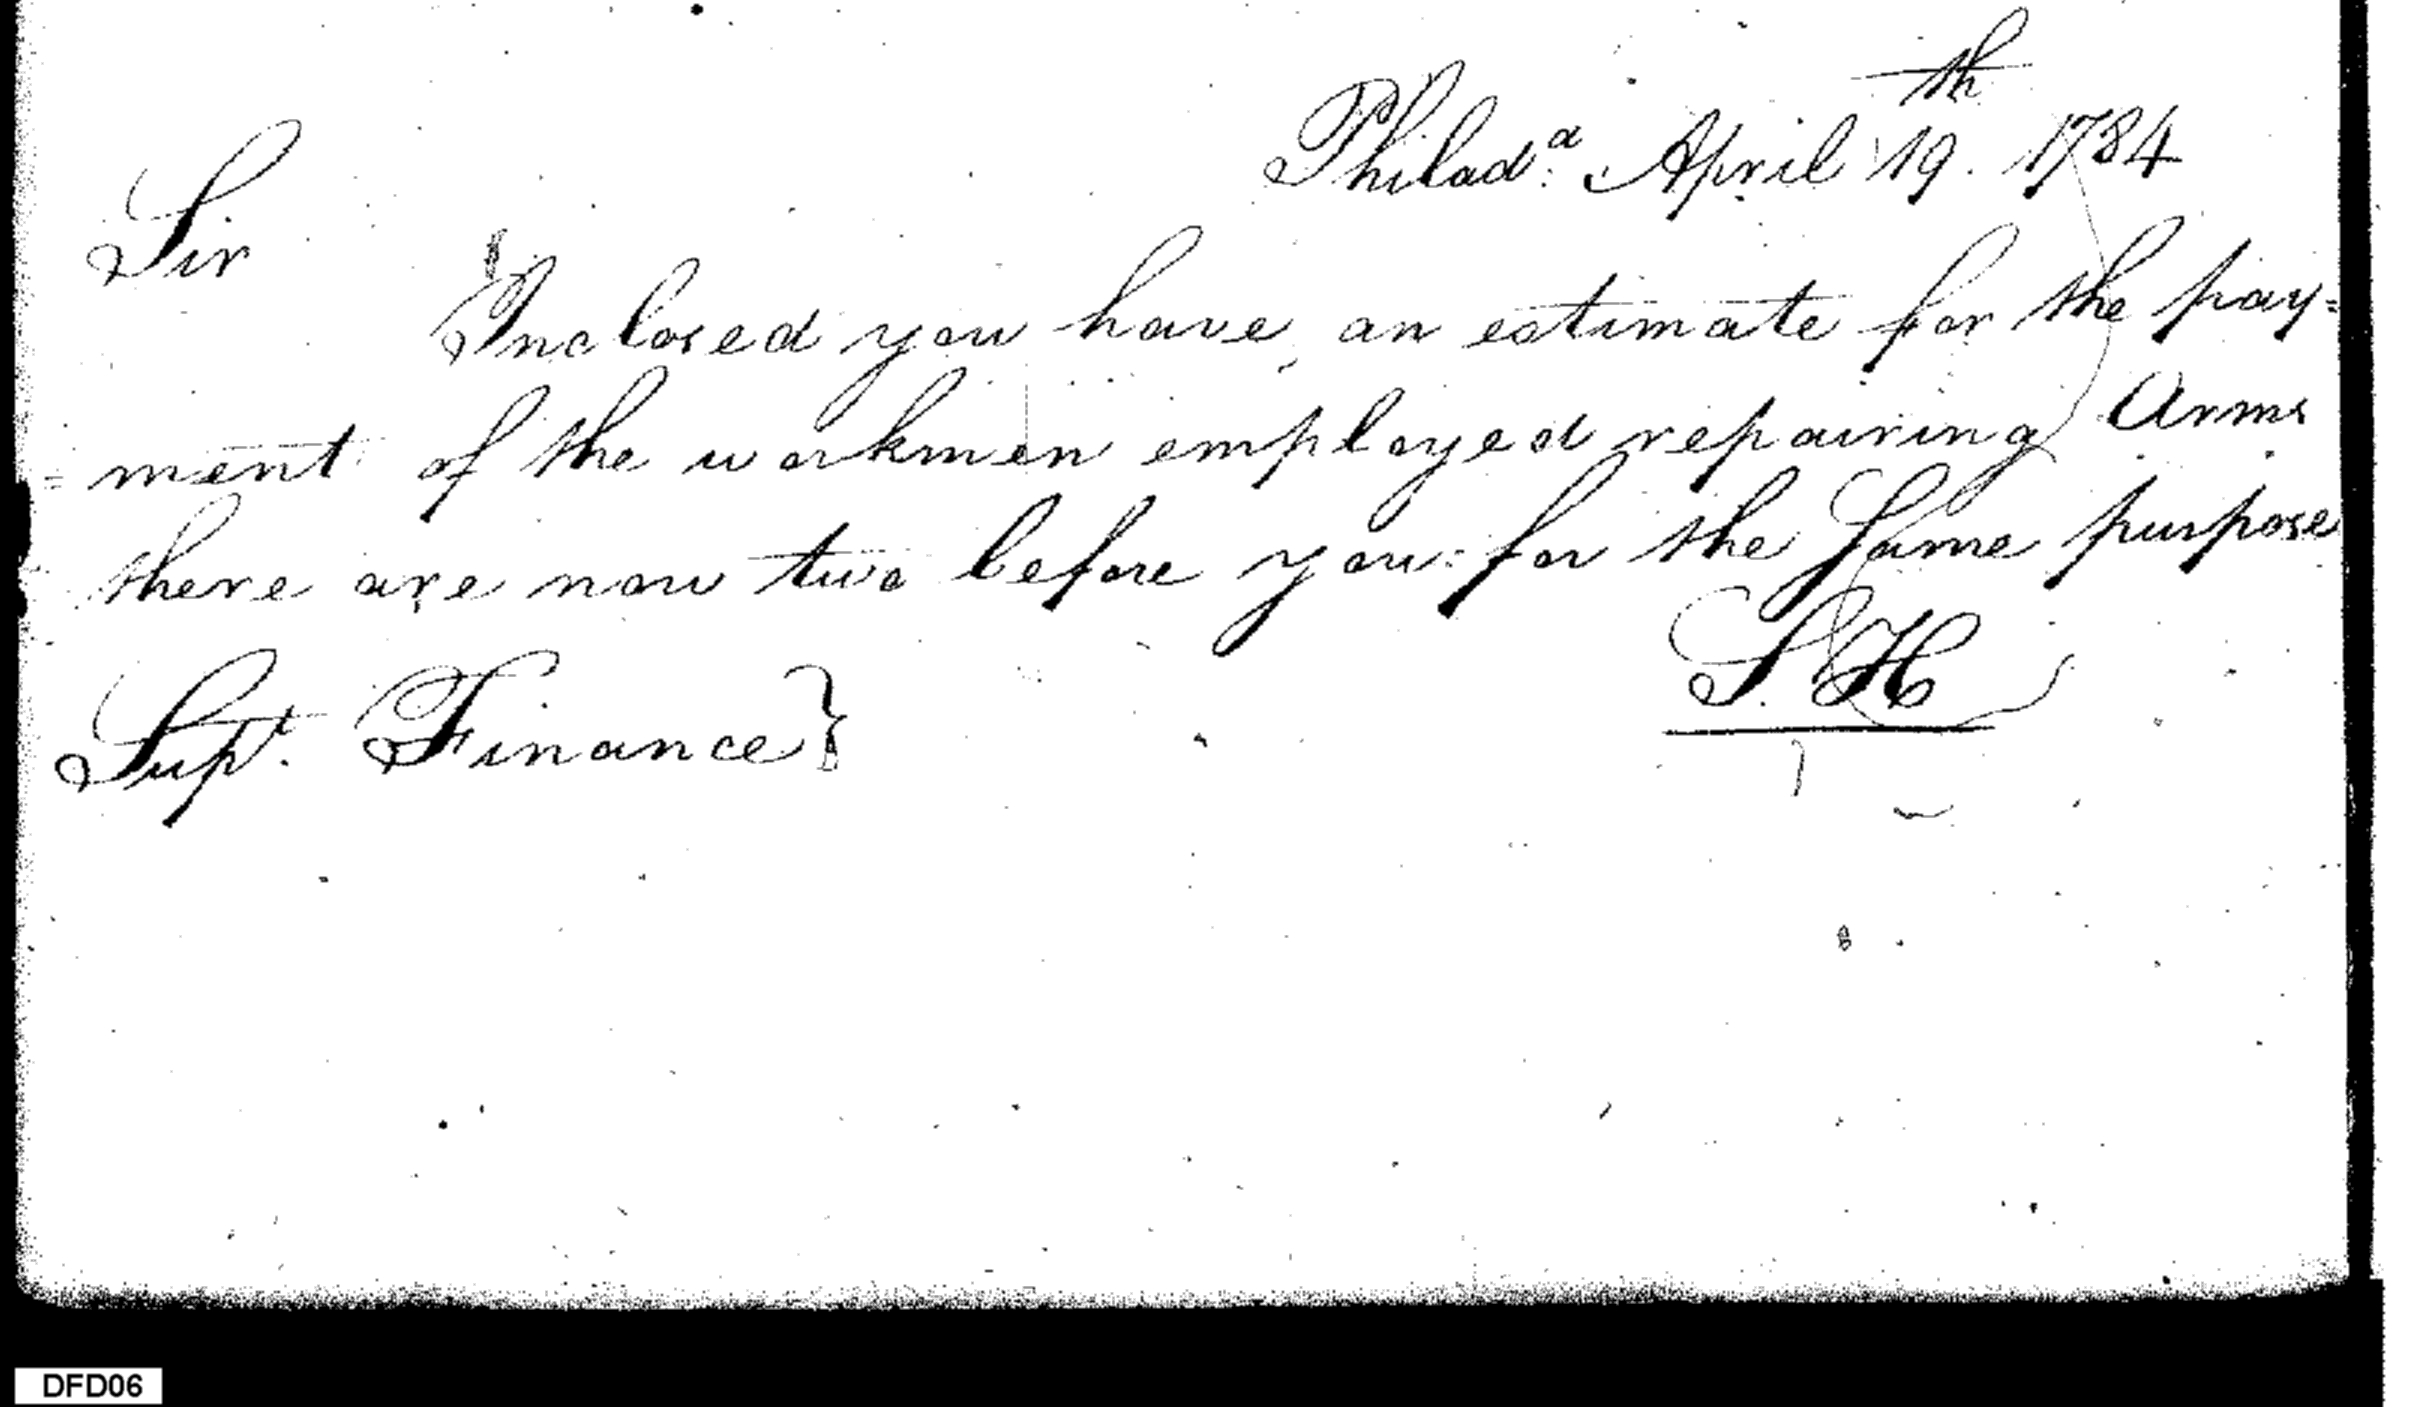 Philad.ª April 19.th 1784
Sir
Inclosed you have an estimate for the pay=
=ment of the workmen employed repairing Arms
there are now two before you for the Same purpose
S. H
Sup.t Finance}
DFD06